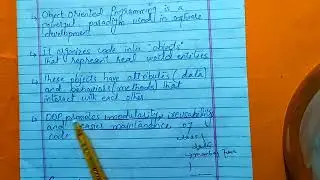 Object Oriented Programming is a
powerful paradigm used in software
development
It organizes code into "objects"
that represent real world entities
These objects have attributes (data)
and behaviors (methods) that
interact with each other.
OOP promotes modularity, reusability
and easier maintenance of
code
class {
data
member func
}